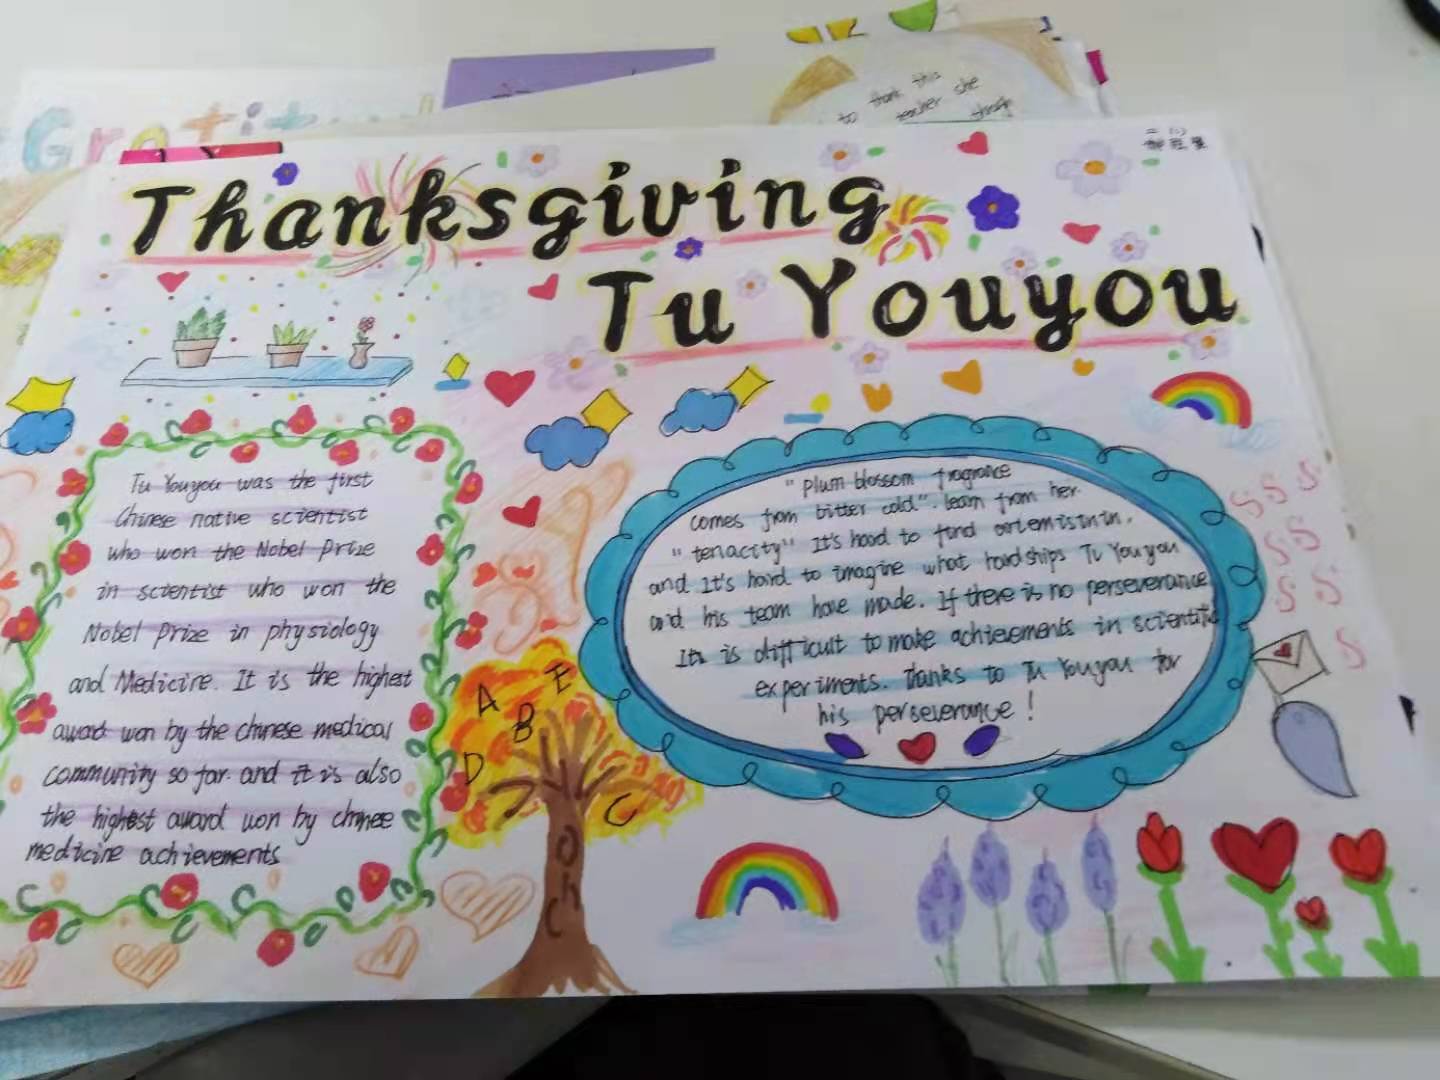 Gratit
to thank this
teacher she
二（1）
Thanksgiving
Tu Youyou
Tu Youyou was the first
Chinese native scientist
who won the Nobel Prize
in scientist who won the
Nobel Prize in physiology
and Medicine. It is the highest
award won by the chinese medical
community so far. and it is also
the highest award won by chinese
medicine achievements
"plum blossom fragrance
comes from bitter cold". learn from her.
"tenacity" It's hard to find artemisinin.
and It's hard to imagine what hardships Tu Youyou
and his team have made. If there is no perseverance
It is difficult to make achievements in scientific
experiments. Thanks to Tu Youyou for
his perseverance!
A E
B
D
C